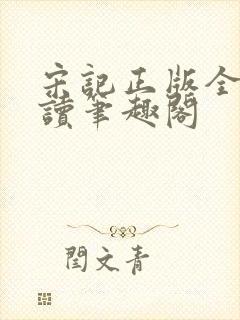 宋記正版全
讀筆趣閣
閆文青